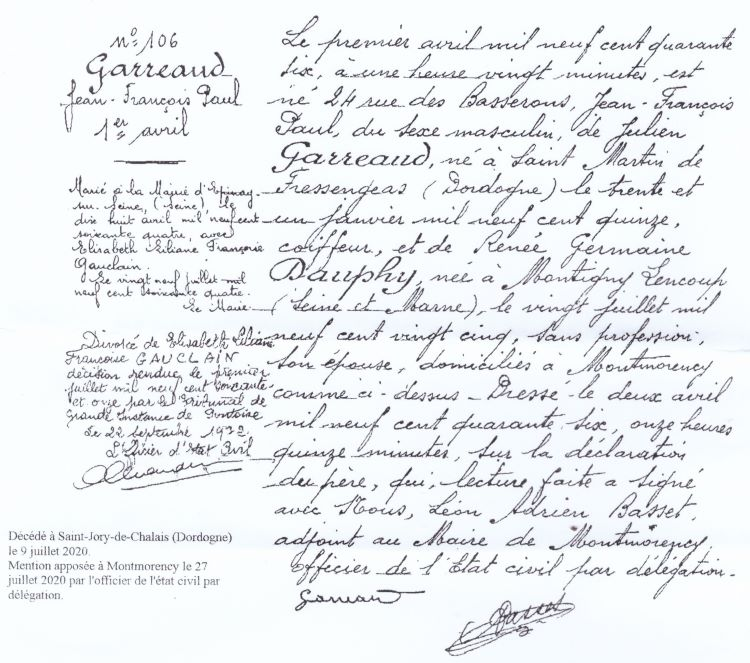 n° 106
Garreaud
Jean-François Paul
1er avril
Marié à la Mairie d'Epinay-
sur Seine, (Seine), le
dix huit avril mil neuf cent
soixante quatre, avec
Elisabeth Liliane Françoise
Gauclain.
Le vingt neuf juillet mil
neuf cent soixante quatre.
Le Maire.
Divorcé de Elisabeth Liliane
Françoise GAUCLAIN
décision rendue le premier
juillet mil neuf cent soixante
et onze par le Tribunal de
Grande Instance de Pontoise
Le 22 Septembre 1972
L'Officier d'Etat Civil
Décédé à Saint-Jory-de-Chalais (Dordogne)
le 9 juillet 2020.
Mention apposée à Montmorency le 27
juillet 2020 par l'officier de l'état civil par
délégation.
Le premier avril mil neuf cent quarante
six, à une heure vingt minutes, est
né 24 rue des Basserons, Jean-François
Paul, du sexe masculin, de Julien
Garreaud, né à Saint Martin de
Fressengeas (Dordogne) le trente et
un janvier mil neuf cent quinze,
coiffeur, et de Renée Germaine
Dauphy, née à Montigny Lencoup
(Seine et Marne), le vingt juillet mil
neuf cent vingt cinq, sans profession,
son épouse, domiciliés à Montmorency
comme ci-dessus - Dressé le deux avril
mil neuf cent quarante six, onze heures
quinze minutes, sur la déclaration
du père, qui, lecture faite a signé
avec Nous, Léon Adrien Basset,
adjoint au Maire de Montmorency,
Officier de l'Etat civil par délégation.